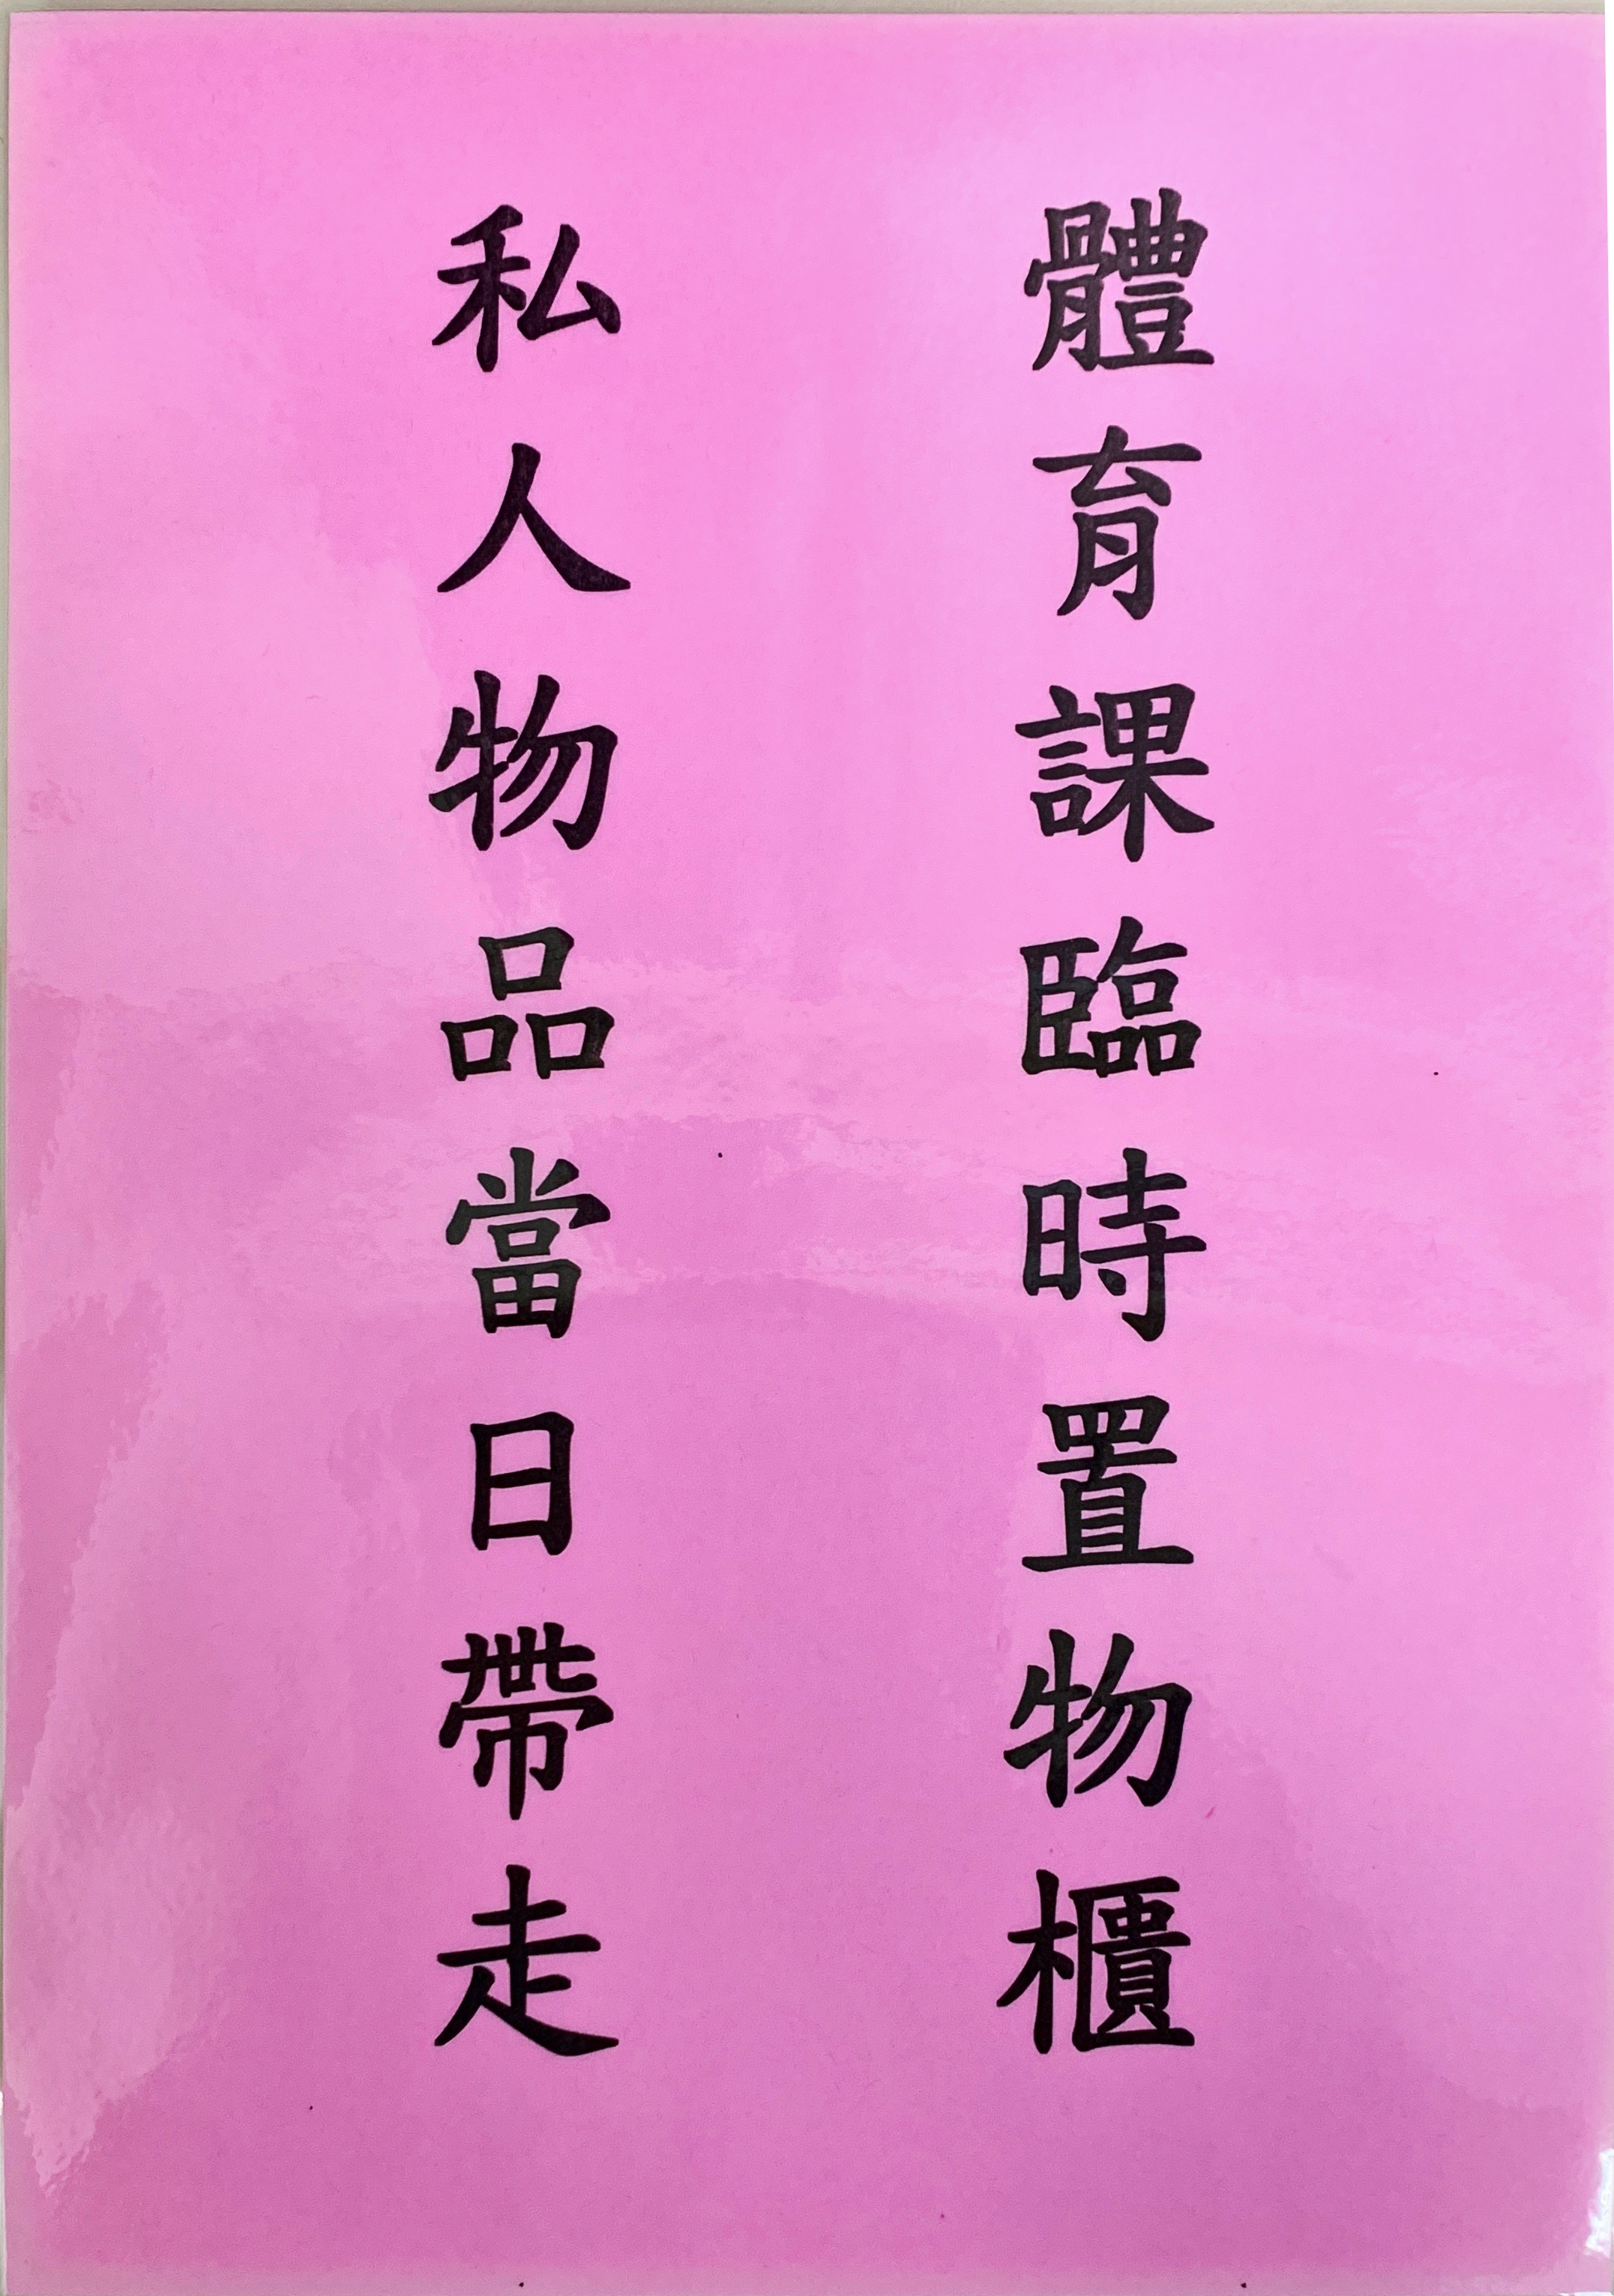 體育課臨時置物櫃
私人物品當日帶走